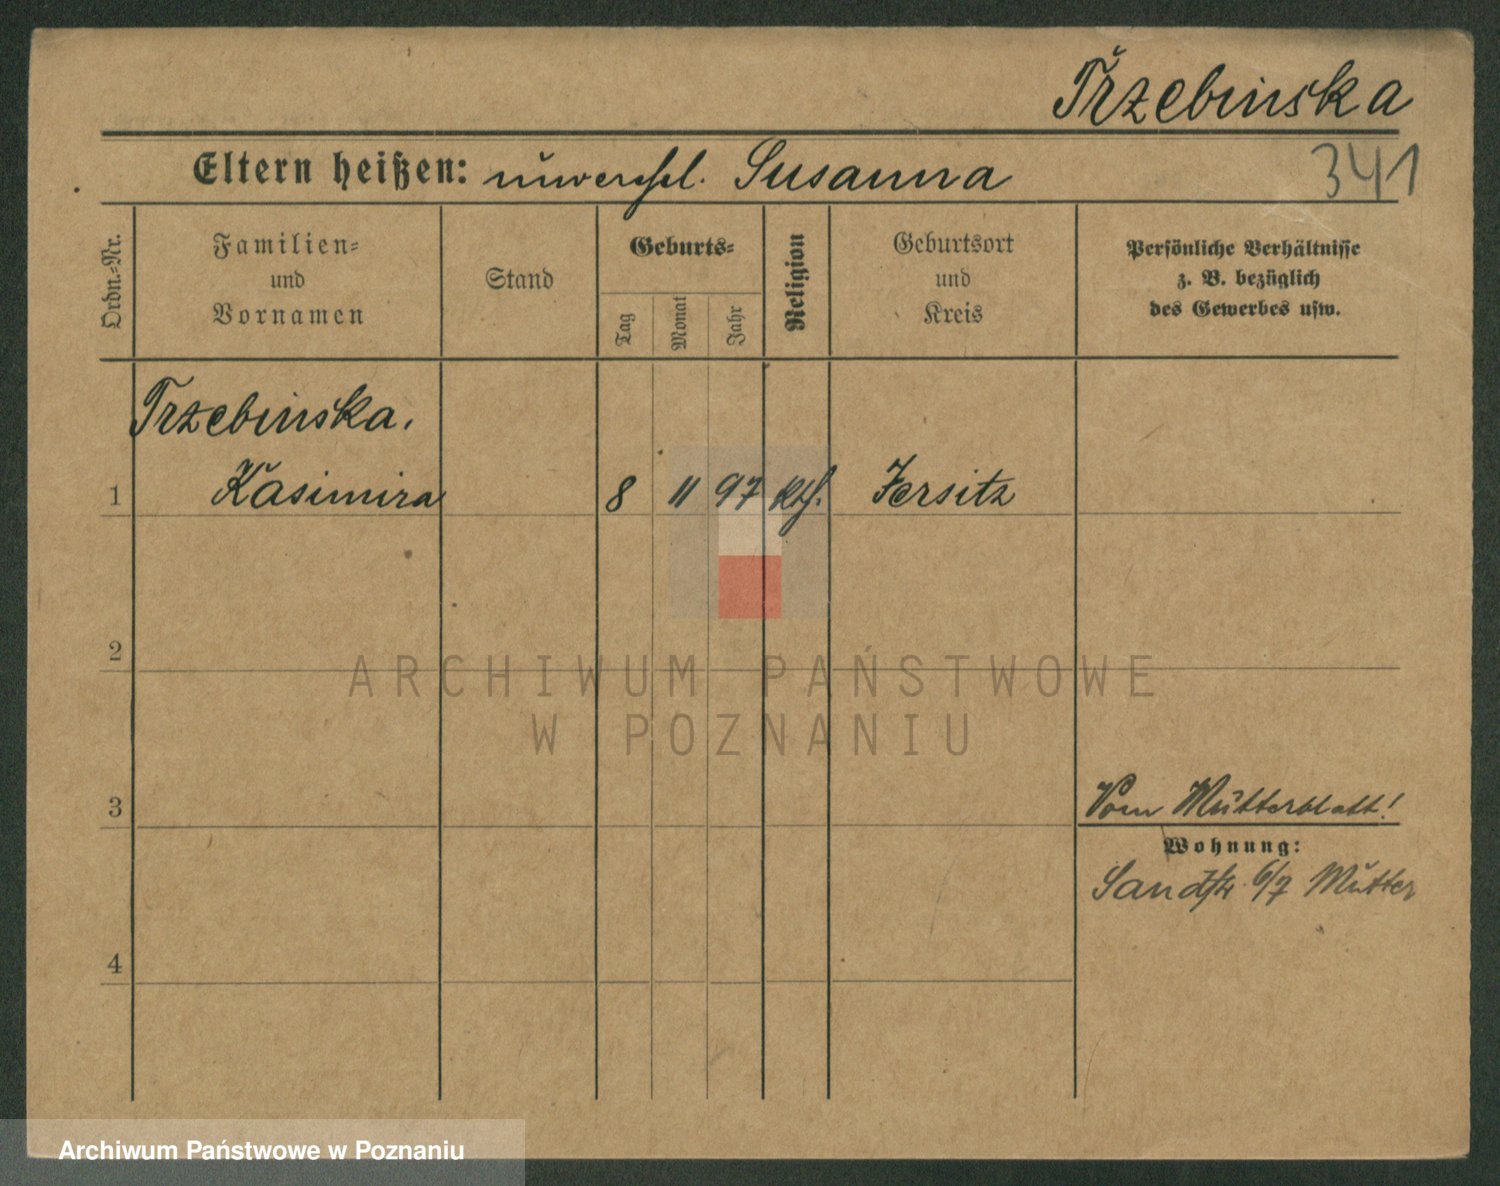 Trzebinska
Eltern heißen: unverehel. Susanna
341
Ordn.-Nr.
Familien-
und
Vornamen
Stand
Geburts-
Tag
Monat
Jahr
Religion
Geburtsort
und
Kreis
Persönliche Verhältnisse
z. B. bezüglich
des Gewerbes usw.
Trzebinska.
1 Kasimira 8 11 97 kth. Jersitz
2
ARCHIWUM PAŃSTWOWE
W POZNANIU
3 Vom Mutterblatt!
Wohnung:
Sandstr 6/7 Mutter
4
Archiwum Państwowe w Poznaniu